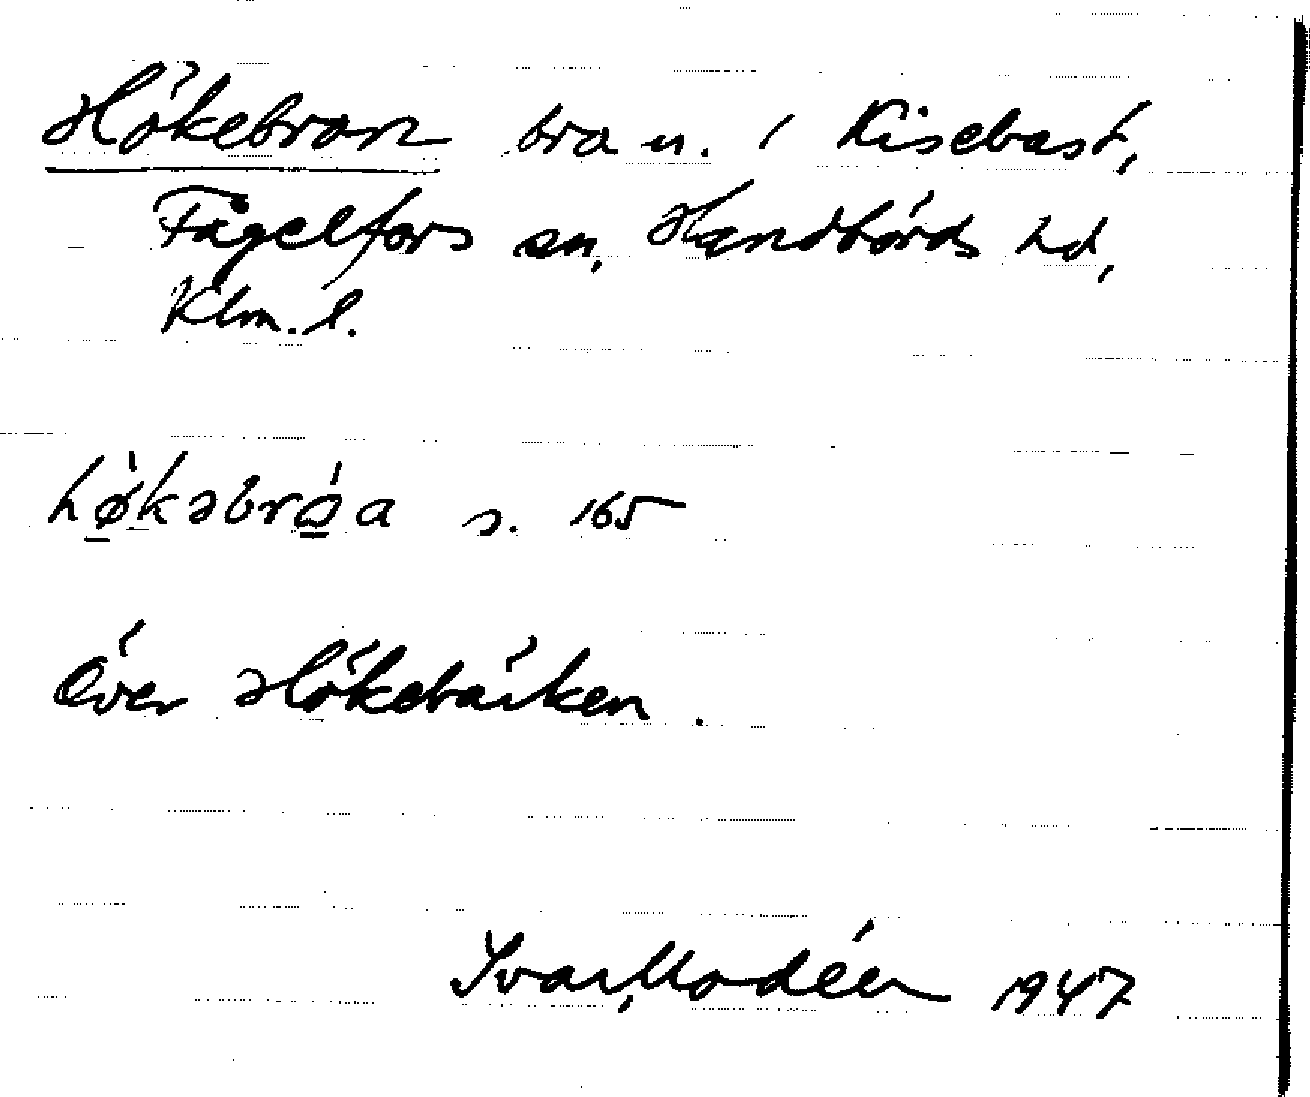 Hökebron bro n. i Kisebast,
Fågelfors sn, Handbörds hd,
Klm. l.
hø̀kəbróa s. 165
Över Hökebäcken.
Ivar Modéer 1947